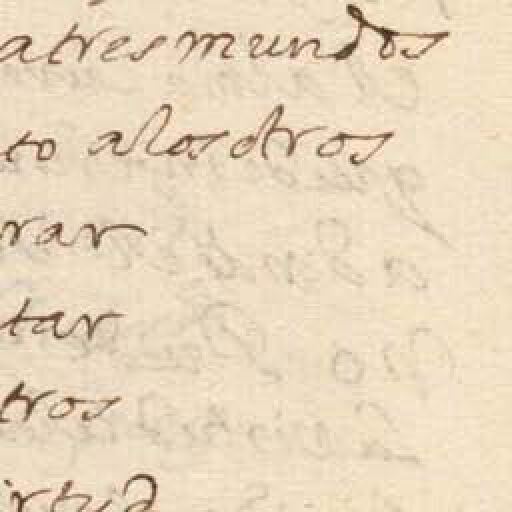 atresmundos
to alos otros
rar
tar
tros
irtud